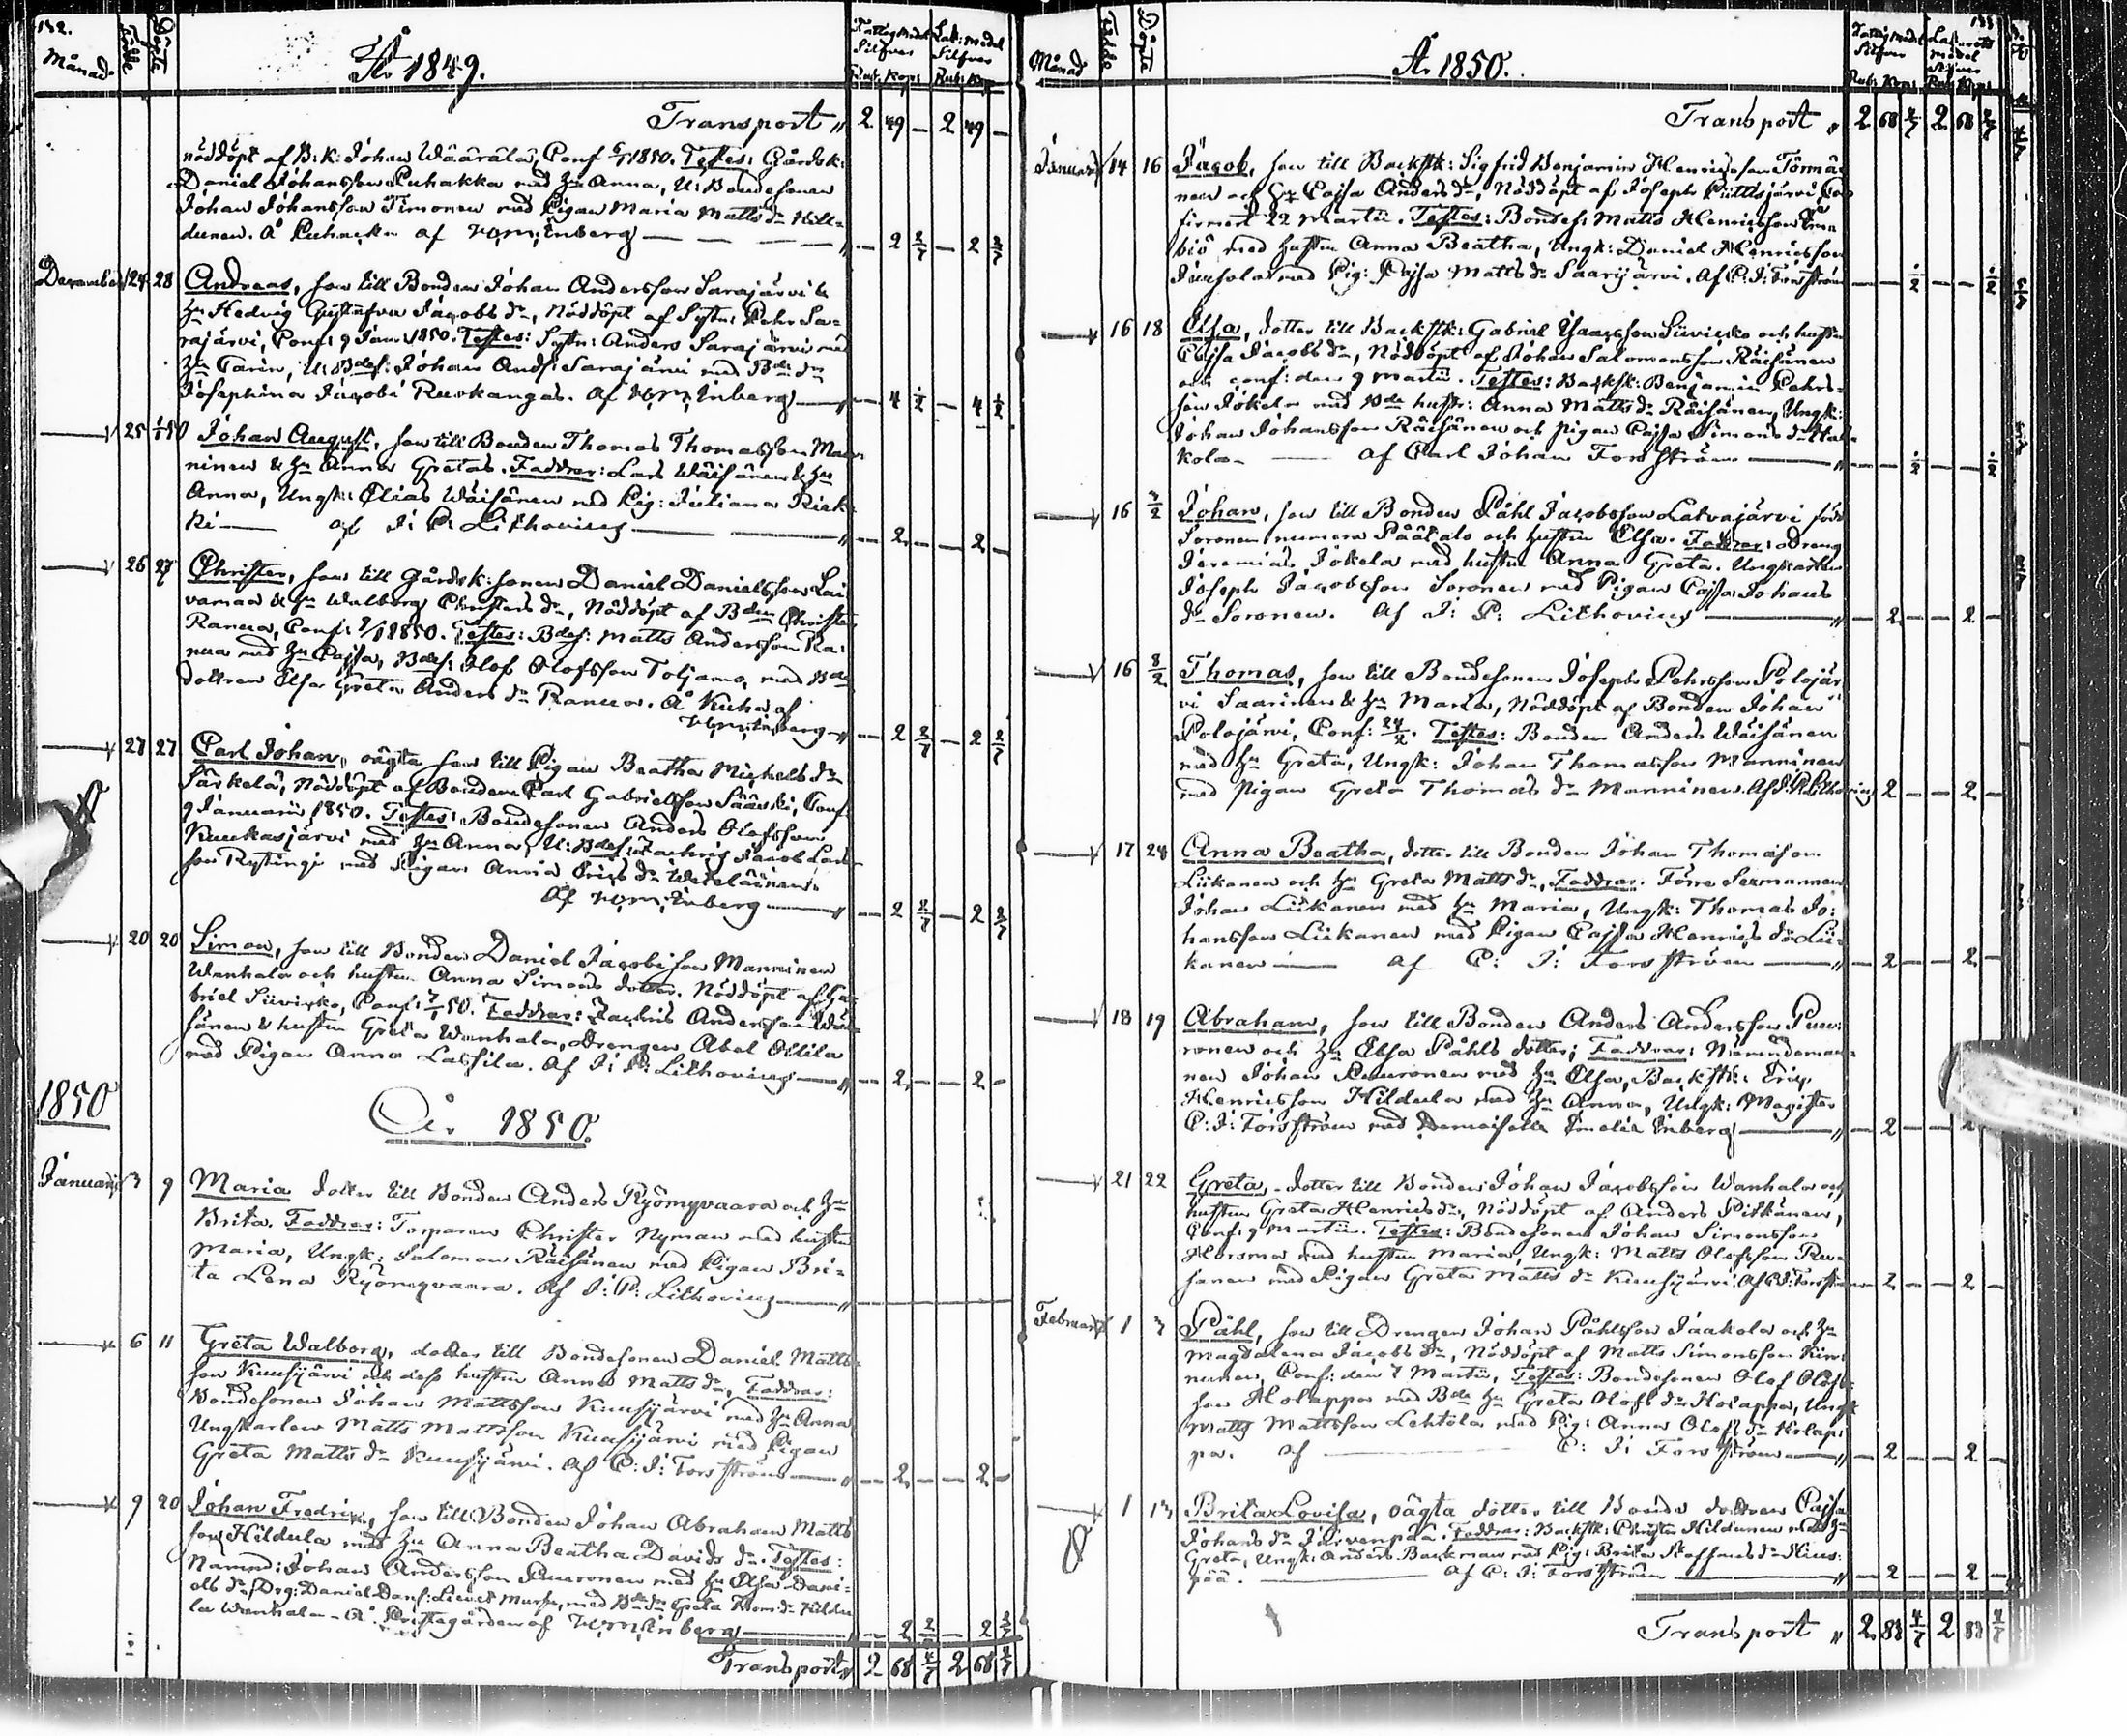 132.
Månad.
Födde
Döpte
År 1849.
Fattig Medel Silfver
Rub: Kop:
Laz: medel Silfver
Rub: Kop:
Transport " 2 49 — 2 49 —
nöddöpt af B:k: Johan Wäärälä, Conf 6/1 1850. Testes: Gårdsk:
Daniel Johansson Puhakka med Hu Anna, U: Bondesonen
Johan Johansson Timonen med Pigan Maria Matts dr Hill-
dunen. Å Puhacka af W:m: Enberg — — — " — 2 2/7 — 2 2/7
December 24 28 Andreas, son till Bonden Johan Andersson Sarajärvi &
Hu Hedvig Gustafva Jacobs dr, Nöddöpt af Sytn: Pehr Sa-
rajärvi, Conf: 9 Jan: 1850. Testes: Sytn: Anders Sarajärvi med
Hu Carin, U: Bdes: Johan Ands: Sarajärvi med Bde dr
Josephina Jacobs Ruokangas. Af W:m: Enberg — " — 4 1/2 — 4 1/2
25 1/1 50 Johan August, son till Bonden Thomas Thomasson Man-
ninen & Hu Anna Gretas. Faddrar: Lars Wäisänen & Hu
Anna, Ungk: Elias Wäisänen med Pig: Juliana Rick-
ki — af J: P: Lithovius — " — 2 — — 2 —
26 27 Christer, son till Gårdsk: sonen Daniel Danielsson Lai-
vamaa & Hu Walborg Christers dr, Nöddöpt af Bden Christer
Ranua, Conf: 9/1 1850. Testes: Bdes: Matts Andersson Ra-
nua med Hu Cajsa, Bdes: Olof Olofsson Toljamo, med Bde
dottren Elsa Greta Anders dr Ranua. Å Kuha af
W:m: Enberg — " — 2 2/7 — 2 2/7
27 27 Carl Johan, oägta son till Pigan Beatha Michels dr
Särkelä, Nöddöpt af Bonden Carl Gabrielsson Sääski, Conf:
9 Januarii 1850. Testes: Bondesonen Anders Olofsson
Kuukasjärvi med Hu Anna, U: Bdes: Zachris Jacob Lars-
son Rytinge med Pigan Anna Erics dr Weteläinen.
Af W:m: Enberg — " — 2 2/7 — 2 2/7
20 20 Simon, son till Bonden Daniel Jacobsson Manninen
Wanhala och hustru Anna Simons dotter. Nöddöpt af Ga-
briel Siivicko, Conf: 7/1 50. Faddrar: Zachris Andersson Wäi-
sänen & hustru Greta Wanhala, Drengen Abel Ollila
med Pigan Anna Lassila. Af J: P: Lithovius — " — 2 — — 2 —
1850
År 1850.
Januarii 3 9 Maria dotter till Bonden Anders Ryömgvaara och Hu
Brita. Faddrar: Torparen Christer Nyman med hustru
Maria, Ungk: Salomon Räisänen med Pigan Bri-
ta Lena Ryömgvaara. Af J: P: Lithovius — "
6 11 Greta Walborg, dotter till Bondesonen Daniel Matts-
son Kuusijärvi och dess hustru Anna Matts dr, Faddrar:
Bondesonen Johan Mattsson Kuusijärvi med Hu Anna
Ungkarlen Matts Mattsson Kuusijärvi med Pigan
Greta Matts dr Kuusijärvi. Af C: J: Forsström — " — 2 — — 2 —
9 20 Johan Fredrik, son till Bonden Johan Abraham Matts-
son Hildula med Hu Anna Beatha Davids dr. Testes:
Nämnd: Johan Andersson Puuronen med Hu Elsa Dani-
els dr, Drg: Daniel
la Wanhala — Å Prestegården af W:m: Enberg — " — 2 2/7 — 2 2/7
Transport " 2 68 4/7 2 68 4/7
133
Månad
Födde
Döpte
År 1850.
Fattig Medel Silfver
Rub: Kop:
Lazaretts medel Silfver
Rub: Kop:
Transport " 2 68 4/7 2 68 4/7
Januarii 14 16 Jacob, son till Backstk: Sigfrid Benjamin Henricsson Törmä-
nen och Hu Cajsa Anders dr, Nöddöpt af Joseph Puttisjärvi, Con-
firmert 22 Martii. Testes: Bondes: Matts Henricsson
med hustru Anna Beatha, Ungk: Daniel Henricsson
med Pig: Cajsa Matts dr Saarijärvi. Af C: J: Forsström — — 1/2 — — 1/2
16 18 Elsa, dotter till Backstk: Gabriel Isaacsson Siivicko och hustru
Cajsa Jacobs dr, Nöddöpt af Johan Salomonsson Räisänen
och conf: den 9 Martii. Testes: Backstk: Benjamin Pehrs-
son Jokela med Bde hustr: Anna Matts dr Räisänen, Ungk:
Johan Johansson Räisänen och pigan Cajsa Simons dr Ha-
kola — af Carl Johan Forsström — " — — 1/2 — — 1/2
16 3/2 Johan, son till Bonden Påhl Jacobsson Latvajärvi född
Soronen numera Päätalo och hustru Elsa. Faddrar: Dreng
Jeremias Jokela med hustru Anna Greta. Ungkarlen
Joseph Jacobsson Soronen med Pigan Cajsa Johans
dr Soronen. Af J: P: Lithovius — " — 2 — — 2 —
16 3/2 Thomas, son till Bondesonen Joseph Pehrsson Polojär-
vi Saarinen & Hu Maria, Nöddöpt af Bonden Johan
Polojärvi, Conf: 24/2. Testes: Bonden Anders Wäisänen
med Hu Greta, Ungk: Johan Thomasson Manninen
med Pigan Greta Thomas dr Manninen. Af J: P: Lithovius 2 — — 2 —
17 24 Anna Beatha, dotter till Bonden Johan Thomasson
Liikanen och Hu Greta Matts dr, Faddrar: Förre Sexmannen
Johan Liikanen med Hu Maria, Ungk: Thomas Jo-
hansson Liikanen med Pigan Cajsa Henrics dr Lii-
kanen — af C: J: Forsström — " — 2 — — 2 —
18 19 Abraham, son till Bonden Anders Andersson Puu-
ronen och Hu Elsa Påhls dotter; Faddrar: Nämndeman-
nen Johan Puuronen med Hu Elsa, Backstk: Eric
Henricsson Hildula med Hu Anna, Ungk: Magister
C: J: Forsström med Demoiselle Emelie Enberg — " — 2 — —
21 22 Greta, dotter till Bonden Johan Jacobsson Wanhala och
hustru Greta Henrics dr, Nöddöpt af Anders Pitkänen,
Conf: 9 Martii. Testes: Bondesonen Johan Simonsson
Horsma med hustru Maria, Ungk: Matts Olofsson Pu-
sanen med Pigan Greta Matts dr Kuusijärvi. Af C: J: Forsström — 2 — — 2 —
Februarii 1 3 Påhl, son till Drengen Johan Påhlsson Jaakola och Hu
Magdalena Jacobs dr, Nöddöpt af Matts Simonsson Kin-
nunen, Conf: den 7 Martii, Testes: Bondesonen Olof Olofs-
son Holappa med Bde Hu Greta Olofs dr Holappa, Ungk
Matts Mattsson Lehtola med Pig: Anna Olofs dr Holap-
pa. af — C: J: Forsström — " — 2 — — 2 —
1 13 Brita Lovisa, oägta dotter till Bonde dottren Cajsa
Johans dr Järvenpää. Faddrar: Backstk: Christer Hildunen med Hu
Greta, Ungk: Anders Backman med Pig: Brita Staffans dr Hius-
pää. — af C: J: Forsström — " — 2 — — 2 —
Transport " 2 83 4/7 2 83 4/7